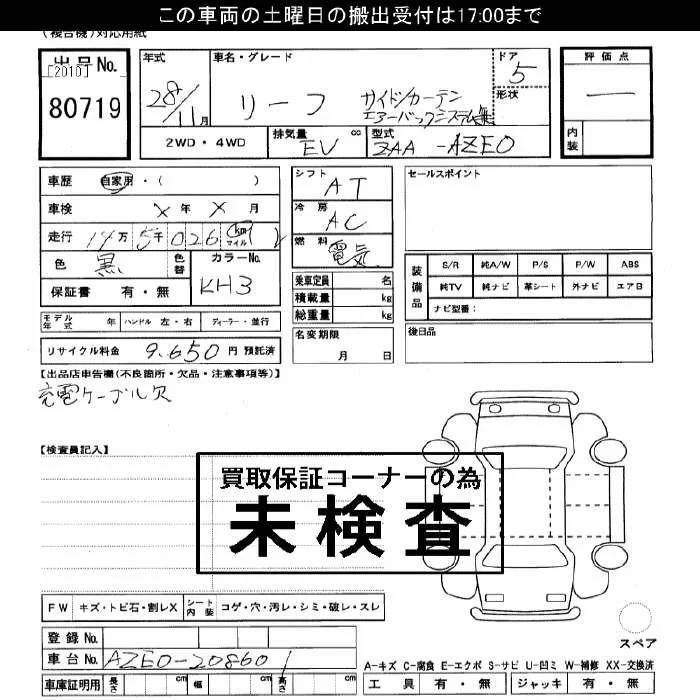 この車両の土曜日の搬出受付は17:00まで
(複合機)対応用紙
出品No.
[2010]
80719
年式
28/11月
車名・グレード
リーフ
サイド/カーテン
エアーバックシステム無
ドア
5
形状
評価点
―
内装
2WD・4WD
排気量 cc
EV
型式
ZAA-AZE0
車歴 自家用・( )
車検 X年X月
走行 14万5千026 km マイル
色 黒 色替
カラーNo.
KH3
保証書 有・無
シフト AT
冷房 AC
燃料 電気
乗車定員 名
積載量 kg
総重量 kg
セールスポイント
装備品
S/R 純A/W P/S P/W ABS
純TV 純ナビ 革シート 外ナビ エアB
ナビ型番:
モデル年式 年 ハンドル 左・右 ディーラー・並行
名変期限
月 日
後日品
リサイクル料金 9,650円 預託済
【出品店申告欄(不良箇所・欠品・注意事項等)】
充電ケーブル欠
【検査員記入】
買取保証コーナーの為
未検査
FW キズ・トビ石・割レX シート内装 コゲ・穴・汚レ・シミ・破レ・スレ
スペア
登録No.
車台No. AZE0-208601
A-キズ C-腐食 E-エクボ S-サビ U-凹ミ W-補修 XX-交換済
車庫証明用 長さ cm 幅 cm 高さ cm
工具 有・無 ジャッキ 有・無